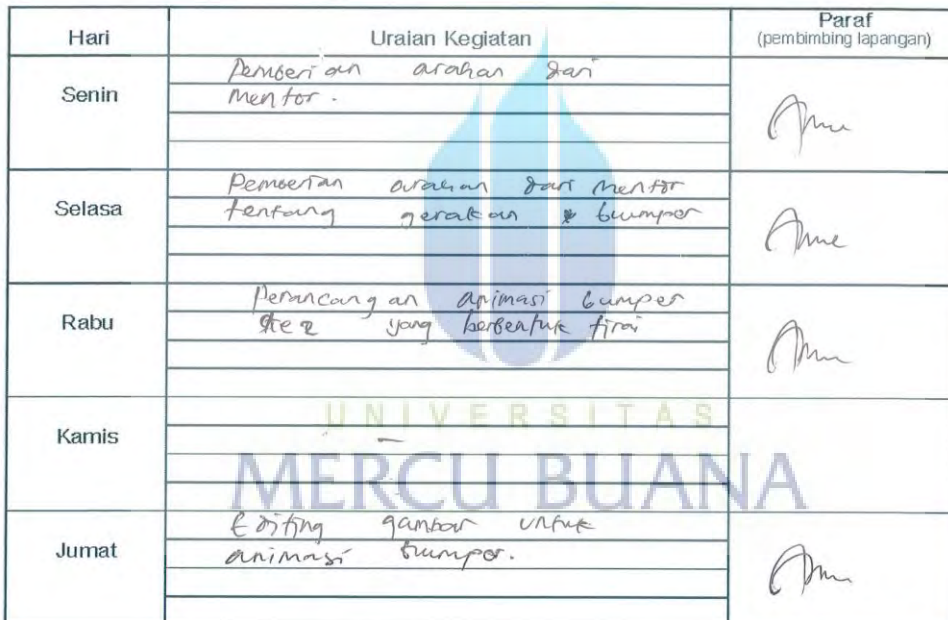 Hari Uraian Kegiatan Paraf
(pembimbing lapangan)
Senin
Pemberian arahan dari
Mentor.
Selasa
Pemberian arahan dari Mentor
tentang gerakan bumper
Rabu
Perancangan animasi bumper
ke 2 yang berbentuk tirai
Kamis
-
UNIVERSITAS
MERCU BUANA
Jumat
Editing gambar untuk
animasi bumper.